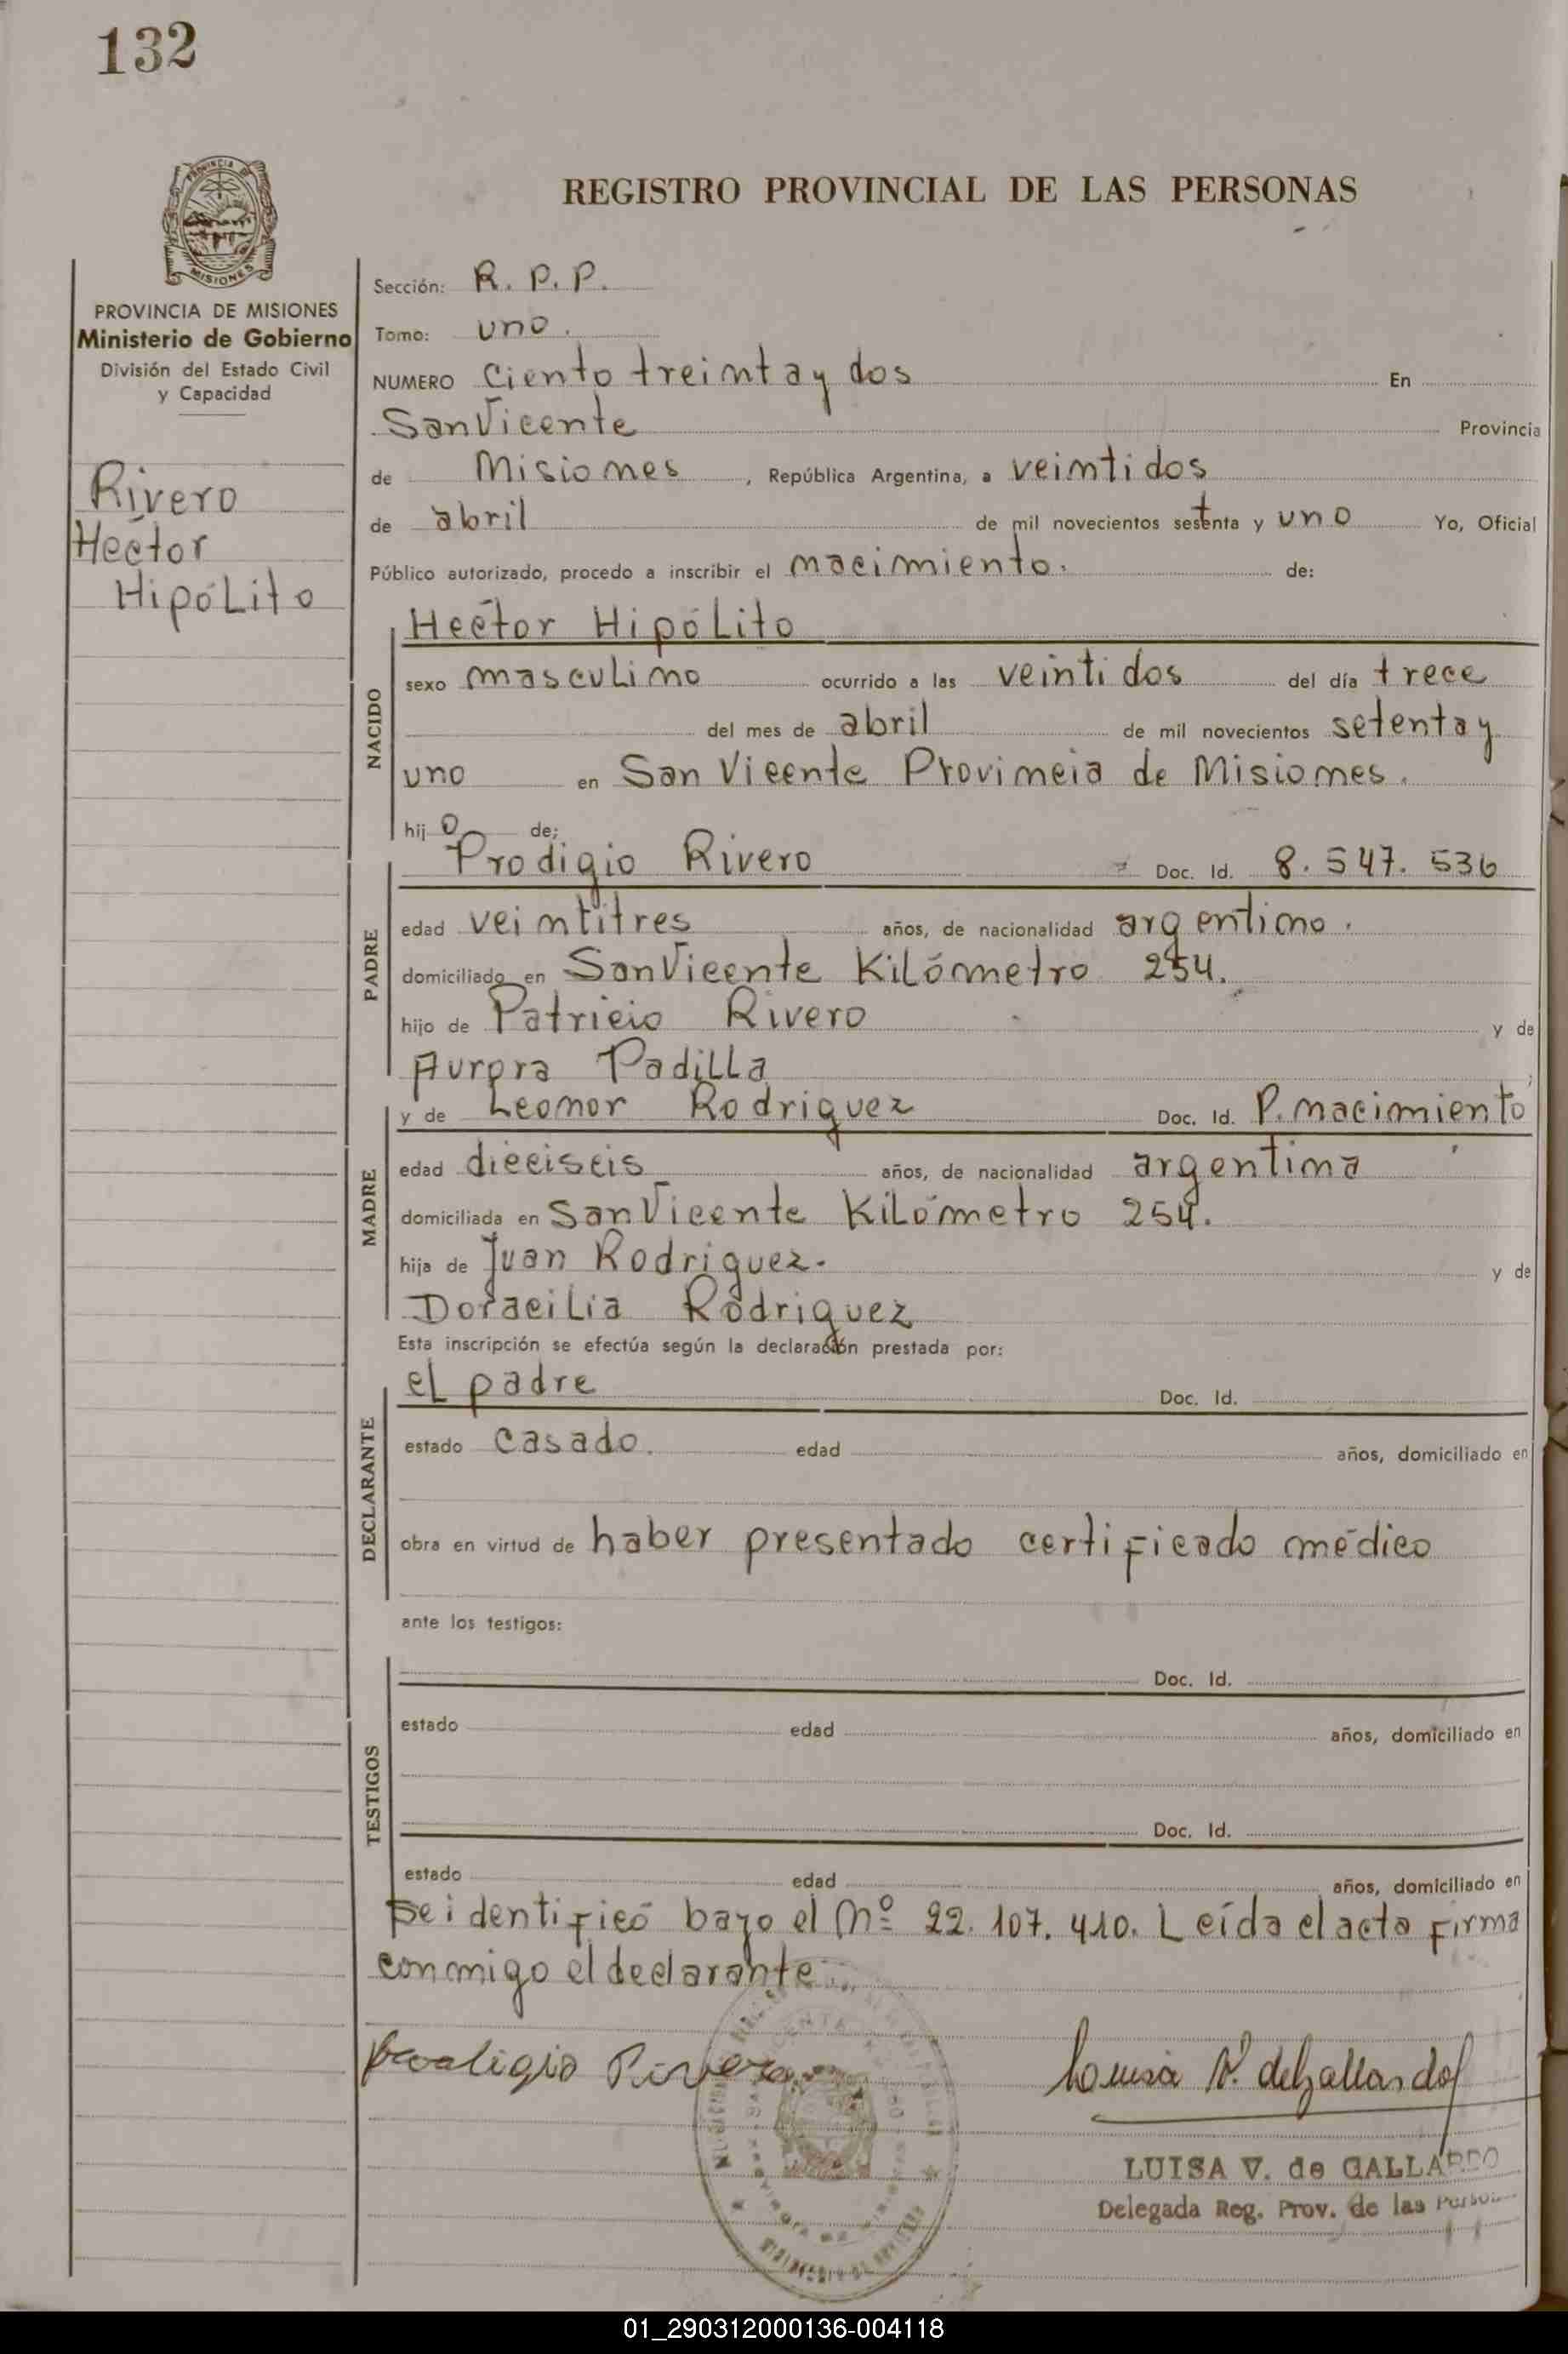 132
PROVINCIA DE
MISIONES
REGISTRO PROVINCIAL DE LAS PERSONAS
PROVINCIA DE MISIONES
Ministerio de Gobierno
División del Estado Civil
y Capacidad
Rivero
Héctor
Hipólito
Sección: R. P. P.
Tomo: uno.
NUMERO Ciento treinta y dos En
San Vicente Provincia
de Misiones, República Argentina, a veintidos
de abril de mil novecientos setenta y uno Yo, Oficial
Público autorizado, procedo a inscribir el nacimiento. de:
NACIDO
Héctor Hipólito
sexo masculino ocurrido a las veintidos del día trece
del mes de abril de mil novecientos setenta y
uno en San Vicente Provincia de Misiones.
hijo de;
PADRE
Prodigio Rivero Doc. Id. 8.547.536
edad veintitres años, de nacionalidad argentino.
domiciliado en San Vicente Kilómetro 254.
hijo de Patricio Rivero y de
Aurora Padilla
MADRE
y de Leonor Rodriguez Doc. Id. P. nacimiento
edad dieciseis años, de nacionalidad argentina
domiciliada en San Vicente Kilómetro 254.
hija de Juan Rodriguez. y de
Doracilia Rodriguez
Esta inscripción se efectúa según la declaración prestada por:
DECLARANTE
el padre Doc. Id.
estado casado. edad años, domiciliado en
obra en virtud de haber presentado certificado médico
ante los testigos:
TESTIGOS
Doc. Id.
estado edad años, domiciliado en
Doc. Id.
estado edad años, domiciliado en
Se identificó bajo el Nº 22.107.410. Leída el acta firma
conmigo el declarante.
Prodigio Rivero
Luisa V. de Gallardo
LUISA V. de GALLARDO
Delegada Reg. Prov. de las Person
01_290312000136-004118